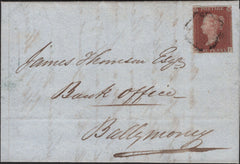 James Thomson Esqr
Bank Office
Ballymoney